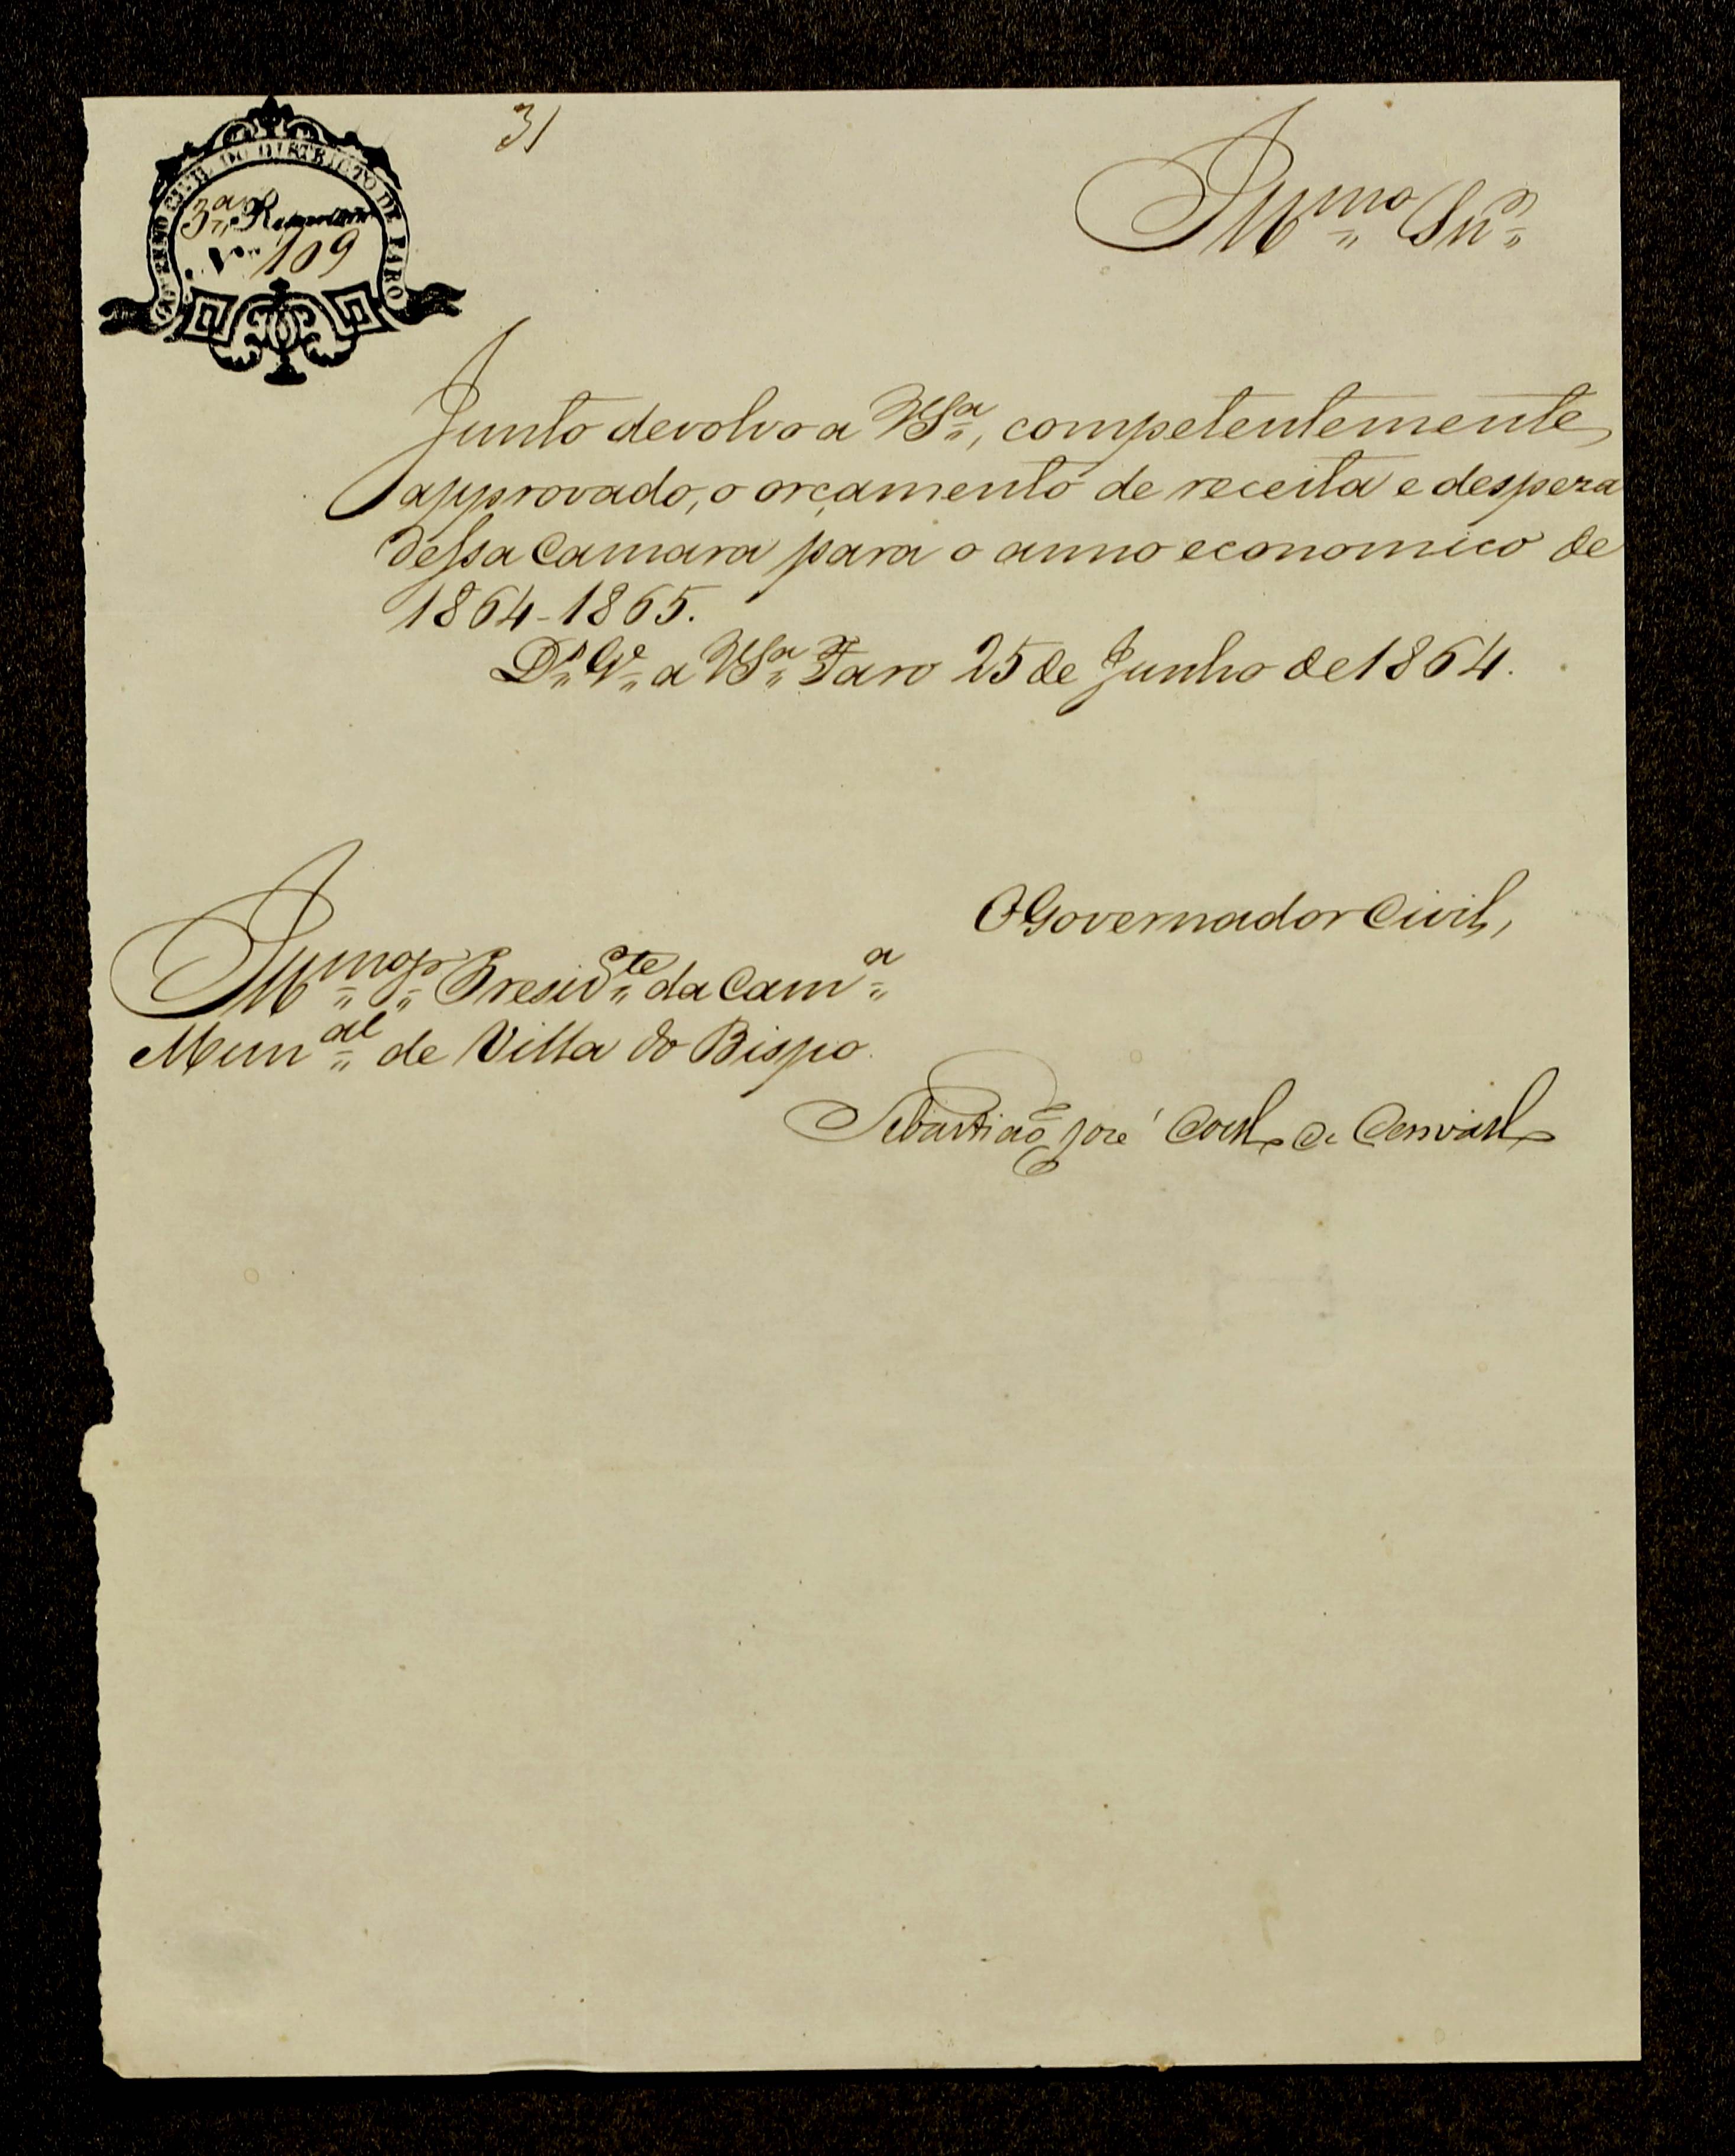 31
GOVERNO CIVIL DO DISTRICTO DE FARO
3ª Repartição
Nº 109
Illmo Snr
Junto devolvo a VSª, competentemente
approvado, o orçamento de receita e despeza
dessa Camara para o anno economico de
1864-1865.
Ds Ge a VSª Faro 25 de Junho de 1864.
O Governador Civil,
Illmo Sr Preside da Camª
Munal de Villa do Bispo.
Sebastião José Coelho de Carvalho